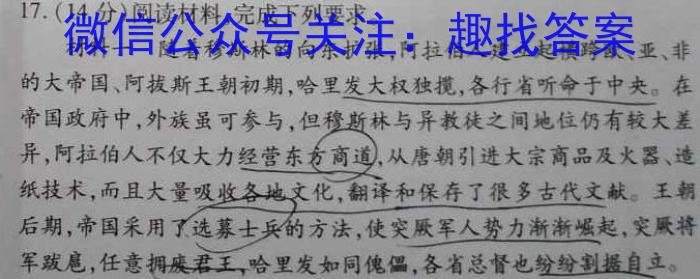 17.(14分)阅读材料,完成下列要求。
微信公众号关注:趣找答案
材料一 随着穆斯林的向东扩张,阿拉伯 建立起横跨欧、亚、非
的大帝国、阿拔斯王朝初期,哈里发大权独揽,各行省听命于中央。在
帝国政府中,外族虽可参与,但穆斯林与异教徒之间地位仍有较大差
异,阿拉伯人不仅大力经营东方商道,从唐朝引进大宗商品及火器、造
纸技术,而且大量吸收各地文化,翻译和保存了很多古代文献。王朝
后期,帝国采用了选募士兵的方法,使突厥军人势力渐渐崛起,突厥将
军跋扈,任意拥废君王,哈里发如同傀儡,各省总督也纷纷割据自立。